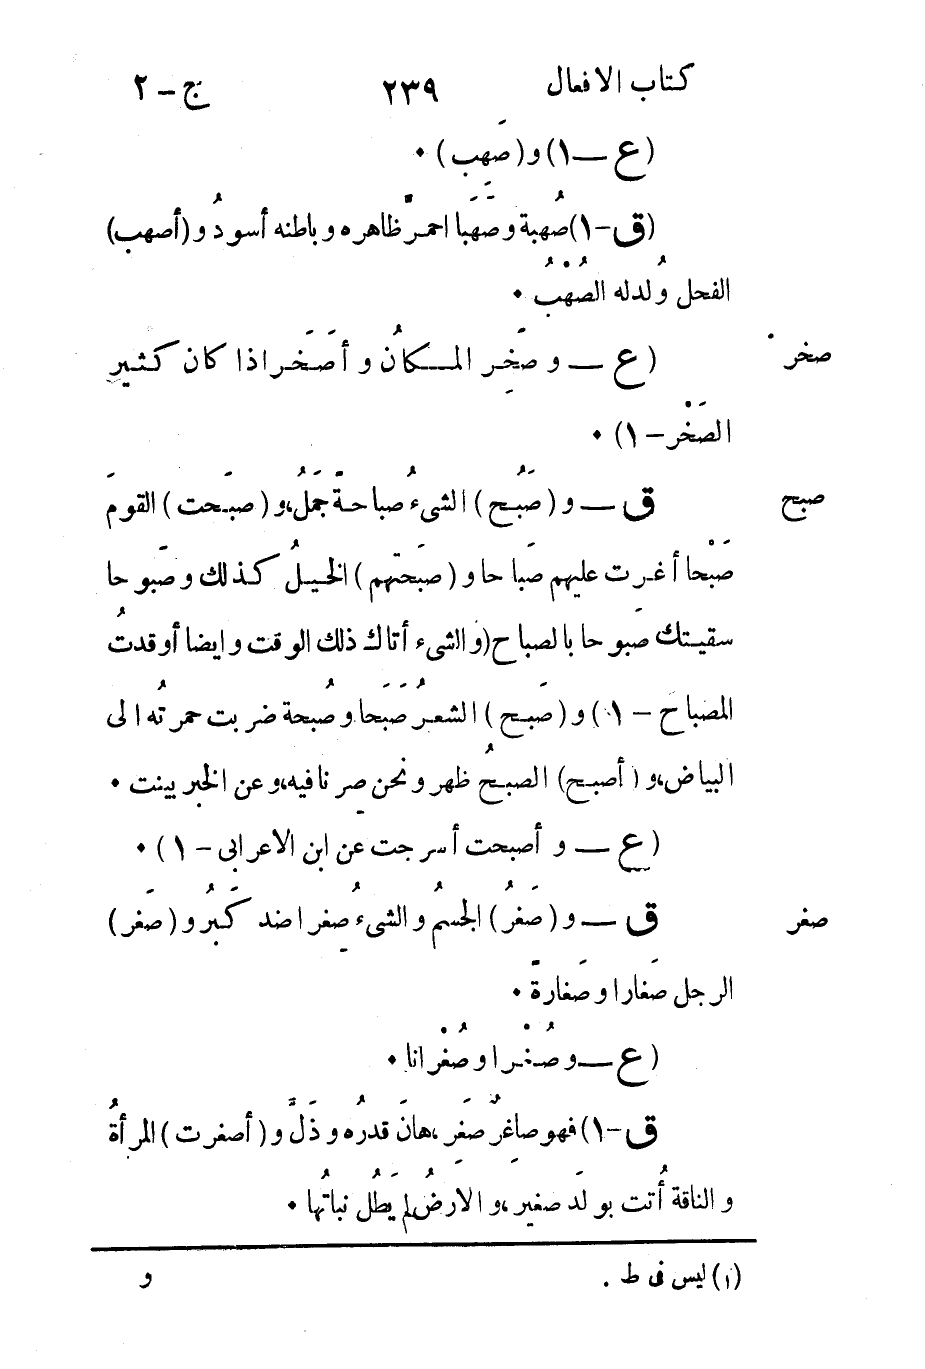 كتاب الافعال ٢٣٩ ج - ٢
(ع — ١) و (صَهِب) ٠
(ق - ١) صُهبة و صَهَبا احمرّ ظاهره و باطنه أسودُ و (أصهب)
الفحل وُلد له الصُهْبُ ٠
صخر (ع — و صَخِر المكانُ و أصَخَر اذا كان كثير
الصَخْر - ١) ٠
صبح ق — و (صَبُح) الشىءُ صباحةً جَمَلُ، و (صبَحت) القومَ
صَبْحا أغرت عليهم صَبا حا و (صبَحتهم) الخيلُ كذلك و صَبوحا
سقيتك صَبوحا بالصباح (و الشىءُ أتاك ذلك الوقت و ايضا أوقدتُ
المصباح - ١) و (صَبح) الشعرُ صَبَحا و صُبحة ضربت حمرتُه الى
البياض، و (أصبح) الصبحُ ظهر و نحن صِرنا فيه، و عن الخبر بينت ٠
(ع — و أصبحت أسرجت عن ابن الاعرابى - ١) ٠
صغر ق — و (صَغُر) الجسمُ و الشىءُ صِغرا ضد كَبُر و (صَغِر)
الرجل صَغارا و صَغارةً ٠
(ع — و صُغْرا و صُغْرانا ٠
ق - ١) فهو صاغِرٌ صَغِر، هانَ قدرُه و ذَلَّ و (أصغرت) المرأةُ
و الناقة أُتت بولَد صغير، و الارضُ لم يَطُل نباتُها ٠
(١) ليس فى ط .
و